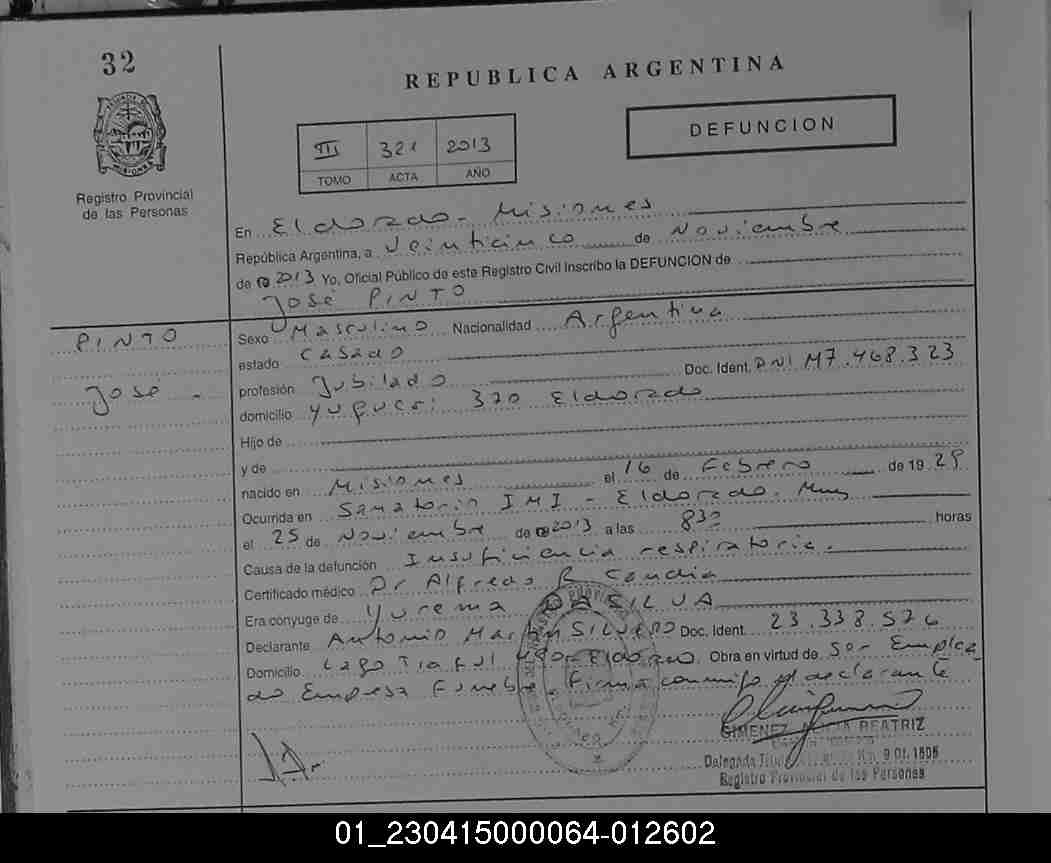 32
REPUBLICA ARGENTINA
DEFUNCION
III 321 2013
TOMO ACTA AÑO
Registro Provincial
de las Personas
En Eldorado - Misiones
República Argentina, a Veinticinco de Noviembre
de 2013 Yo, Oficial Público de este Registro Civil Inscribo la DEFUNCION de
José PINTO
PINTO
José -
Sexo Masculino Nacionalidad Argentina
estado Casado
profesión Jubilado Doc. Ident. DNI M7.468.323
domicilio Yupucri 320 Eldorado
Hijo de
y de
nacido en Misiones el 16 de Febrero de 1929
Ocurrida en Sanatorio IMI - Eldorado. Mnes
el 25 de Noviembre de 2013 a las 830 horas
Causa de la defunción Insuficiencia respiratoria.
Certificado médico Dr Alfredo R Candia
Era conyuge de Yurema DA SILVA
Declarante Antonio Martin SILVERO Doc. Ident. 23.338.526
Domicilio Lago Eldorado Obra en virtud de Ser Emplea
do Empresa Funebre. Firma conmigo el declarante
GIMENEZ BEATRIZ
Delegada Km. 9 01. 1808
Registro Provincial de las Personas
01_230415000064-012602